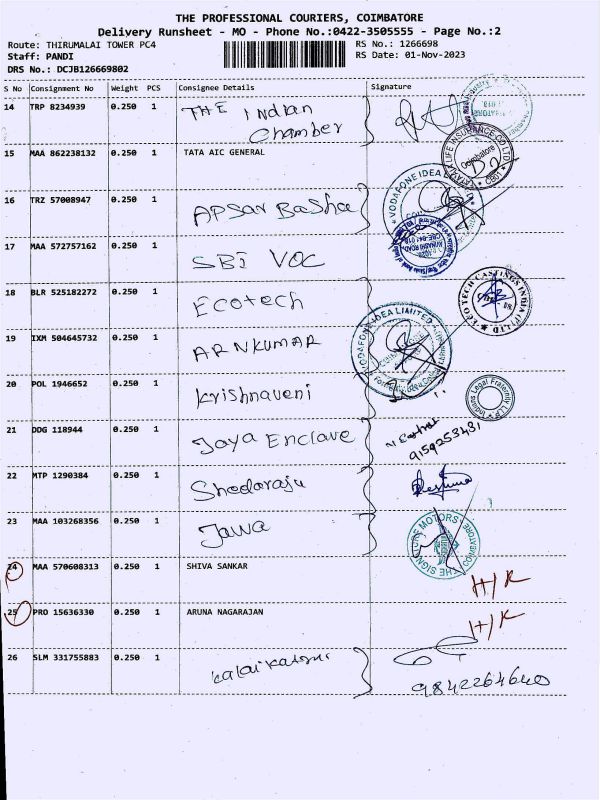 THE PROFESSIONAL COURIERS, COIMBATORE
Delivery Runsheet - MO - Phone No.:0422-3505555 - Page No.:2
Route: THIRUMALAI TOWER PC4 RS No.: 1266698
Staff: PANDI RS Date: 01-Nov-2023
DRS No.: DCJB126669802
S No Consignment No Weight PCS Consignee Details Signature
14 TRP 8234939 0.250 1 THE Indian
Chamber
15 MAA 862238132 0.250 1 TATA AIC GENERAL
LIFE INSURANCE CO LTD
Coimbatore
CB01
16 TRZ 57008947 0.250 1 APSar Basha
VODAFONE IDEA
17 MAA 572757162 0.250 1 SBI VOC
18 BLR 525182272 0.250 1 Ecotech
ECOTECH CASTINGS INDIA (P) LTD
19 IXM 504645732 0.250 1 ARNKUMAR
VODAFONE IDEA LIMITED
20 POL 1946652 0.250 1 Krishnaveni
Legal Fraternity LLP
21 DDG 118944 0.250 1 Jaya Enclave
9159253431
22 MTP 1290384 0.250 1 Shedaraju
23 MAA 103268356 0.250 1 Jawa
THE SIGNATURE MOTORS
COIMBATORE
24 MAA 570608313 0.250 1 SHIVA SANKAR H/K
25 PRO 15636330 0.250 1 ARUNA NAGARAJAN H/K
26 SLM 331755883 0.250 1
9842264640